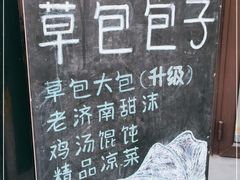 草包包子
草包大包(升级)
老济南甜沫
鸡汤馄饨
精品凉菜